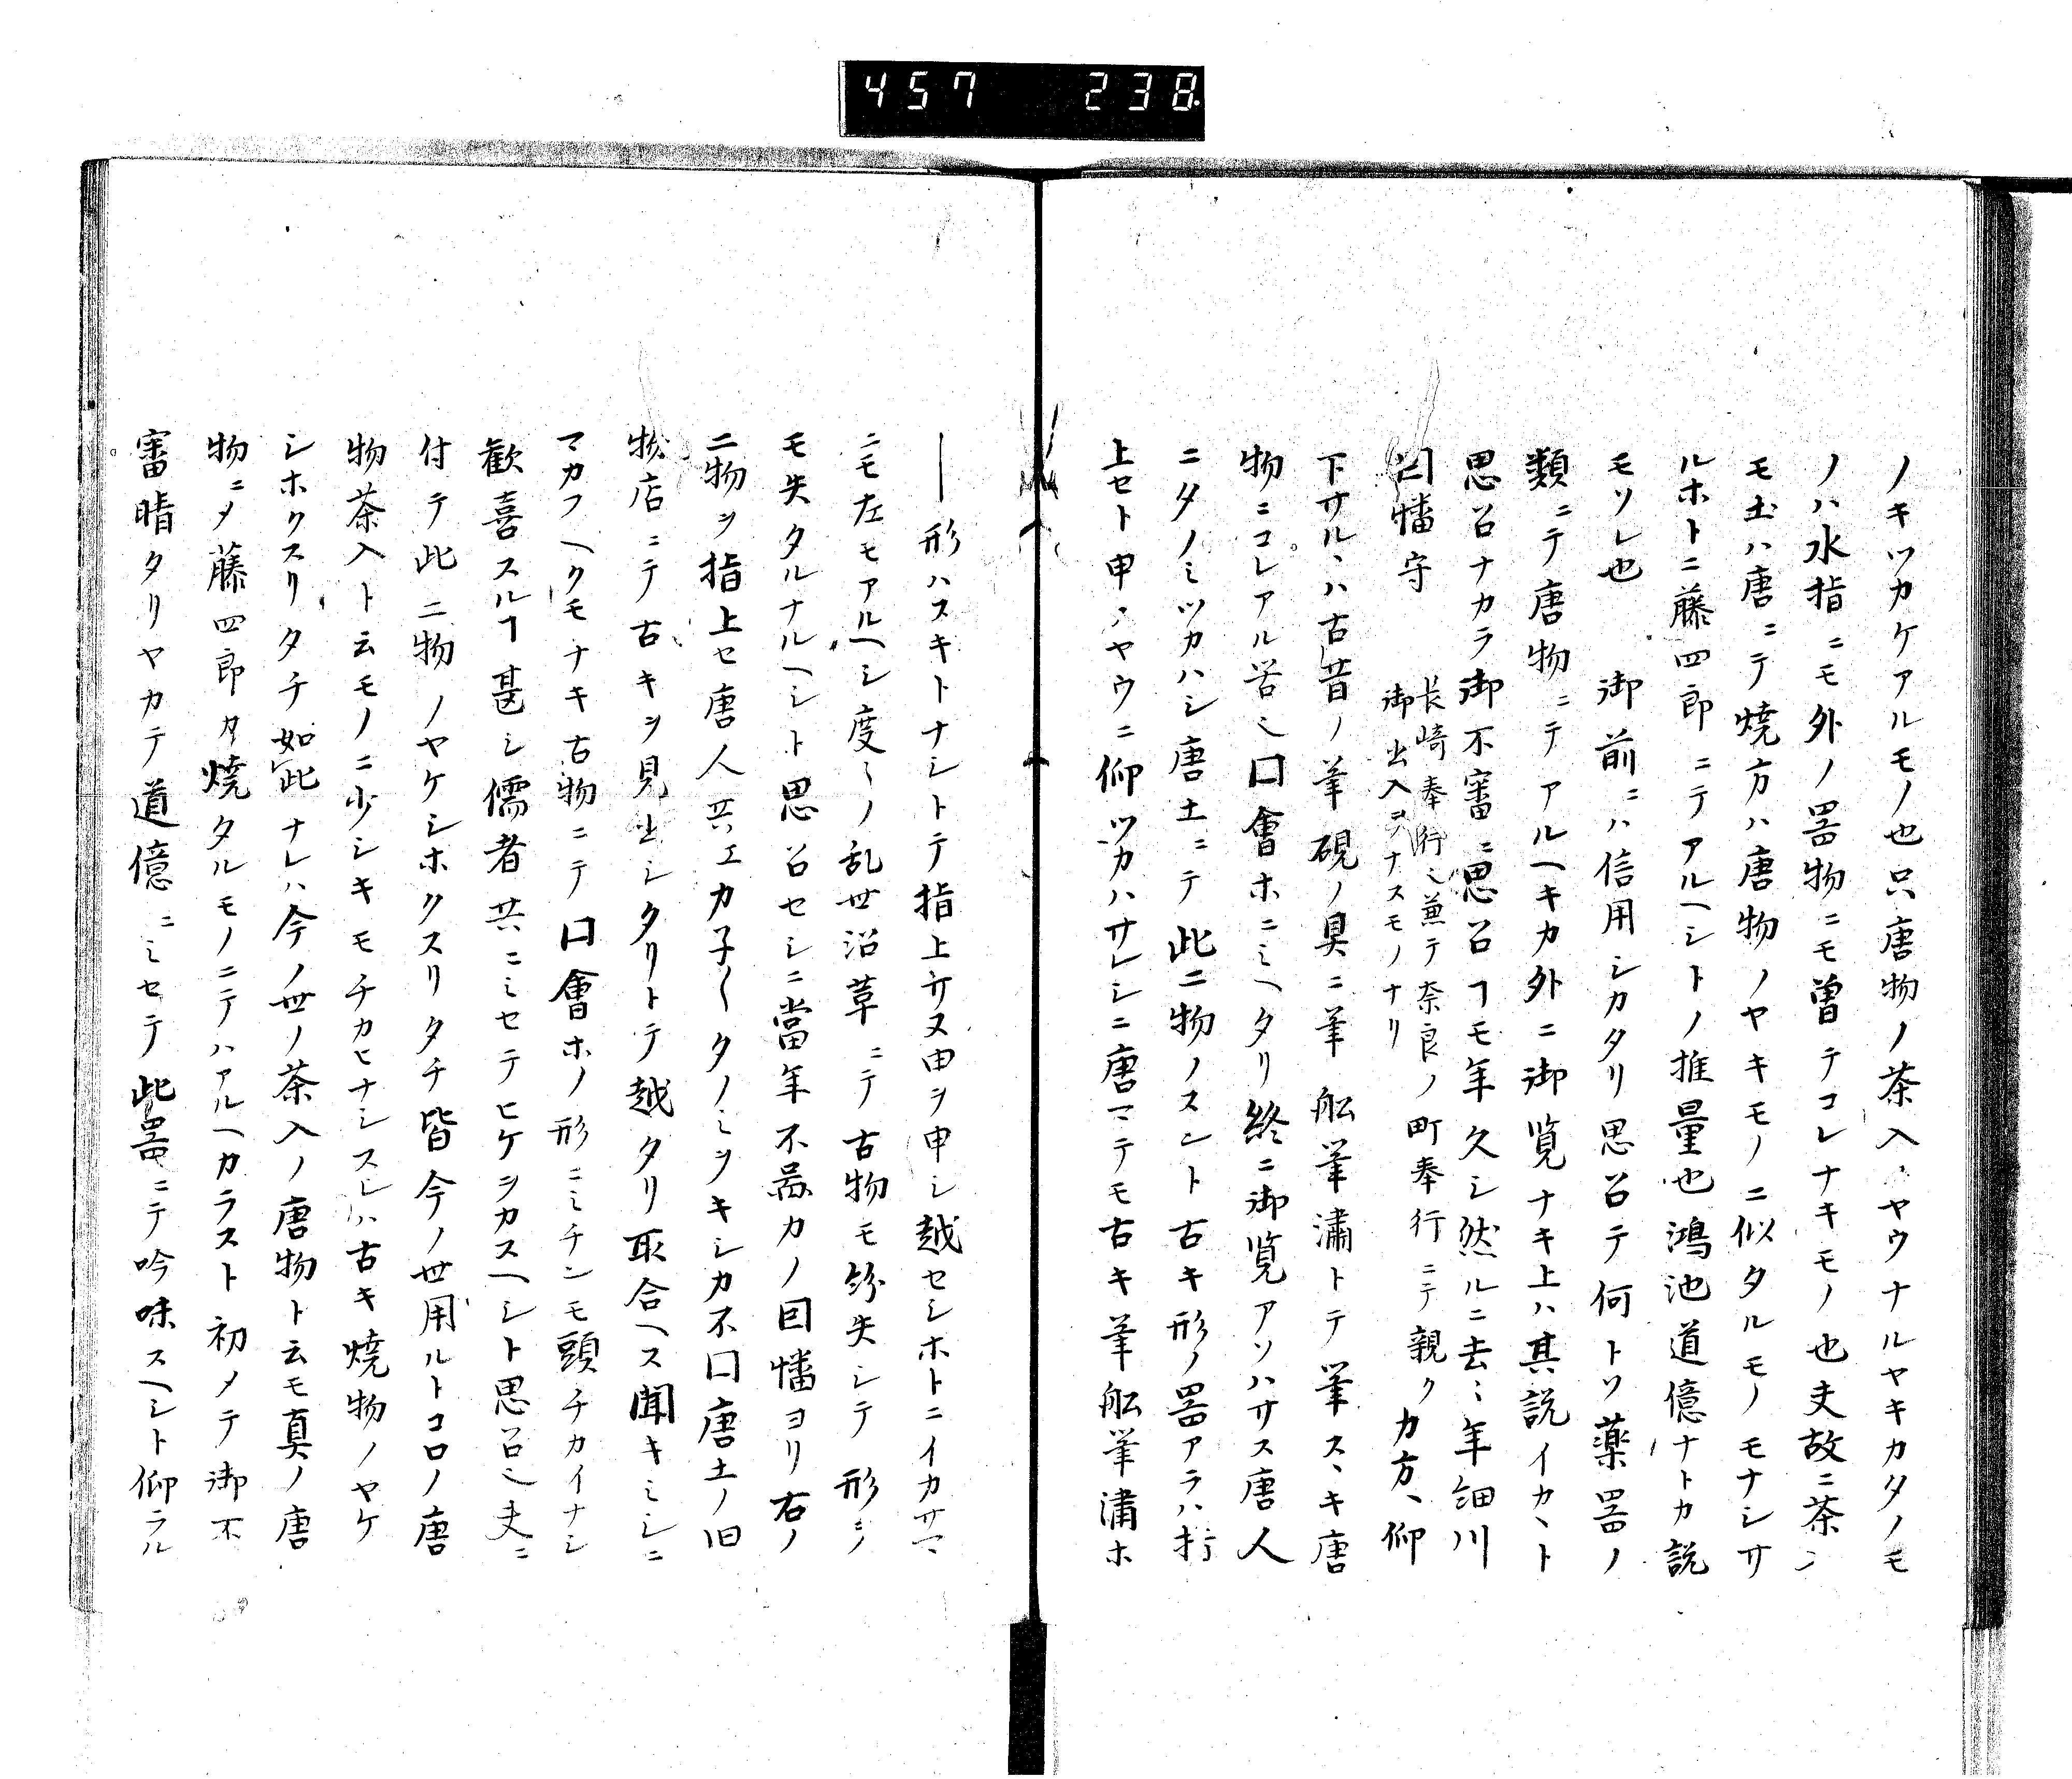 457 238
ノキツカケアルモノ也只唐物ノ茶入ヽヤウナルヤキカタノモ
ノハ水指ニモ外ノ器物ニモ曽テコレナキモノ也夫故ニ茶ノ
モ土ハ唐ニテ焼方ハ唐物ノヤキモノニ似タルモノモナシサ
ルホトニ藤四郎ニテアルヘシトノ推量也鴻池道億ナトカ説
モソレ也 御前ニハ信用シカタリ思召テ何トソ薬器ノ
類ニテ唐物ニテアルヘキカ外ニ御覧ナキ上ハ其説イカヽト
思召ナカラ御不審ニ思召ヿモ年久シ然ルニ去ミ年細川
因幡守 長崎奉行也兼テ奈良ノ町奉行ニテ親ク
御出入ヲナスモノナリ カ方ヽ仰
下サルヽハ古昔ノ筆硯ノ具ニ筆舩筆潚トテ筆スヽキ唐
物ニコレアル筈也口會ホニミヘタリ終ニ御覧アソハサス唐人
ニタノミツカハシ唐土ニテ此二物ノスント古キ形ノ器アラハ指
上セト申ヽヤウニ仰ツカハサレシニ唐マテモ古キ筆舩筆潚ホ
ノ形ハスキトナシトテ指上ケヌ由ヲ申シ越セシホトニイカサマ
ニモ左モアルヘシ度〻ノ乱世沿革ニテ古物モ紛失シテ形ミノ
モ失タルナルヘシト思召セシニ當年不啚カノ因幡ヨリ右ノ
二物ヲ指上セ唐人共エカ子〱タノミヲキシカ不口唐土ノ旧
物店ニテ古キヲ見出シタリトテ越タリ取合ヘス聞キミシニ
マカフヘクモナキ古物ニテ口會ホノ形ニミチンモ頭チカイナシ
歓喜スルヿ甚シ儒者共ニミセテヒケヲカスヘシト思召也夫ニ
付テ此二物ノヤケシホクスリタチ皆今ノ世用ルトコロノ唐
物茶入ト云モノニ少シキモチカヒナシスレハ古キ焼物ノヤケ
シホクスリタチ如此ナレハ今ノ世ノ茶入ノ唐物ト云モ真ノ唐
物ニメ藤四郎カ焼タルモノニテハアルヘカラスト初メテ御不
審晴タリヤカテ道億ニミセテ此器ニテ吟味スヘシト仰ラル